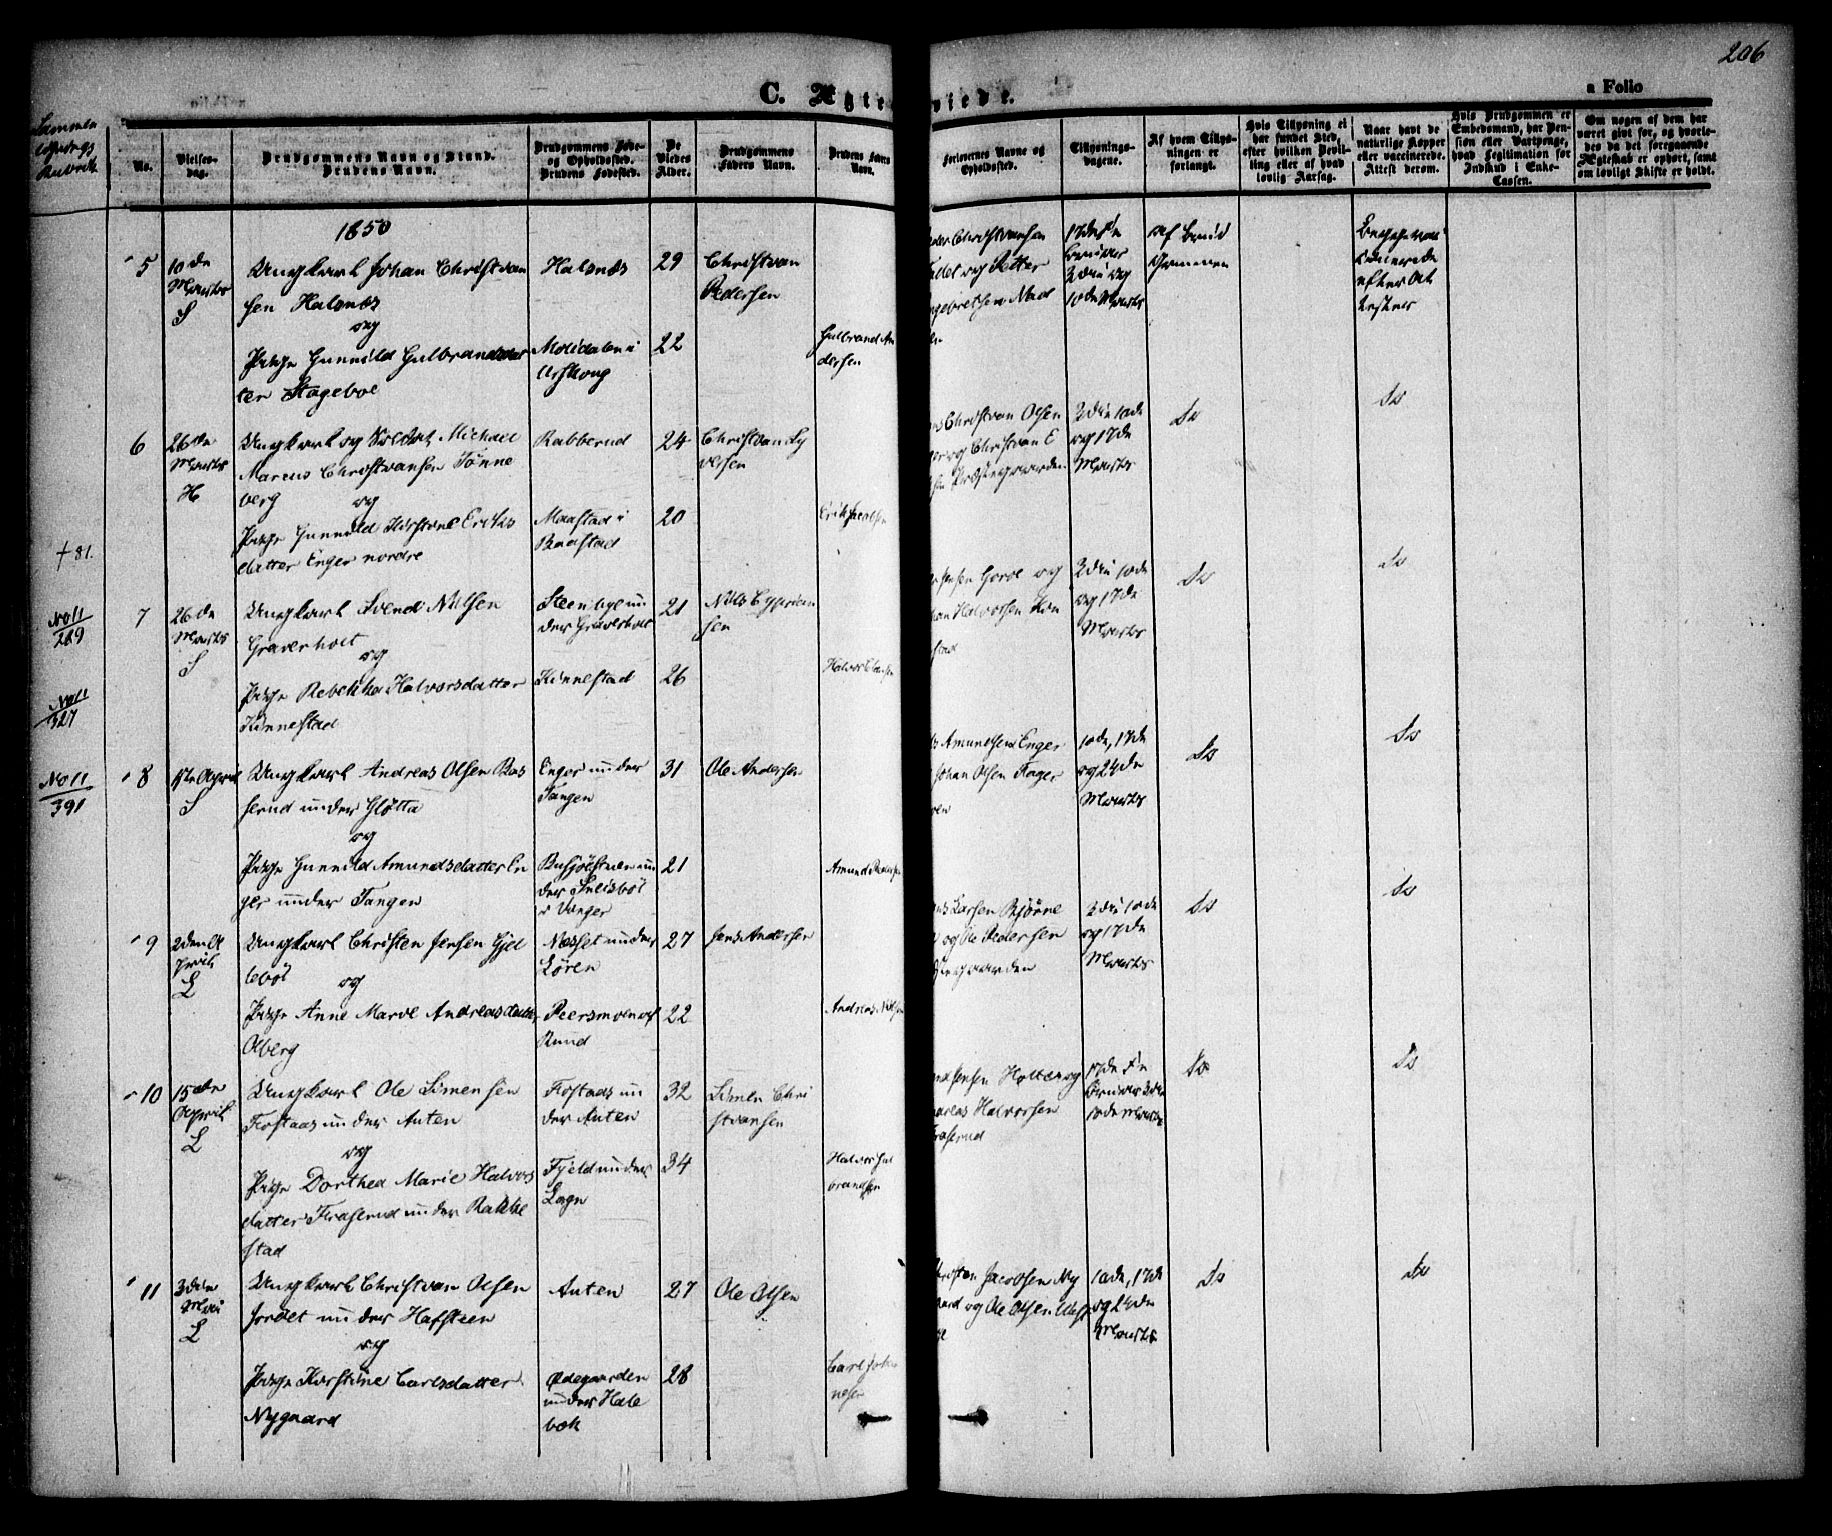 206
C. Ægte
viede.
a Folio
Sammen
Rubrik
No.
Vielses-
dag.
Brudgommens Navn og Stand.
Brudens Navn.
Brudgommens Føde-
og Opholdssted.
Brudens Fødested.
De
Viedes
Alder.
Brudgommens
Faders Navn.
Brudens Faders
Navn.
Forlovernes Navne og
Opholdssted.
Tillysnings-
dagene.
Af hvem Tillys-
ningen er
forlangt.
Hvis Tillysning ei
har fundet Sted,
efter hvilken Bevil-
ling eller af hvad
lovlig Aarsag.
Naar havt de
naturlige Kopper
eller vaccinerede.
Attest derom.
Hvis Brudgommen er
Embedsmand, har Pen-
sion eller Vartpenge,
hvad Legitimation for
Indskud i Enke-
Cassen.
Om nogen af dem har
været gift før, og hvorle-
des da det foregaaende
Ægteskab er ophørt, samt
om lovligt Skifte er holdt.
1850
5
10de
Marts
S
Ungkarl Johan Christian
sen Halsnæs
og
Pige Gunnild Gulbrandsdat
ter Stageboe
Halsnæs
Molidalen i
Urskoug
29
22
Christian
Pedersen
Gulbrand An
dersen
Peder Christiansen
og Petter
Engebretsen
17de Fe
bruar
3die og
10de Marts
af Brud
gommen
Begge vac
cinerede
efter At
tester
6
26de
Marts
H
Ungkarl og Soldat Michael
Marcus Christiansen Tønne
berg
og
Pige Gunnild Kirstine Eriks
datter Enger nordre
Rabberud
Maastad i
Baastad
24
20
Christian Sy
versen
Erik Jacobsen
Christian Olsen
og Christian E
Præstegaarden
3die 10de
og 17de
Marts
Do
Do
† 81.
7
26de
Marts
S
Ungkarl Svend Nilsen
Graverholt
og
Pige Rebekka Halvorsdatter
Kinnestad
Steenbye un
der Graverholt
Kinnestad
21
26
Nils Cyprian
sen
Halvor Clausen
Jensen Gorol og
Johan Halvorsen Kin
nestad
3die 10de
og 17de
Marts
Do
Do
No 11
289
No 11
327
8
1ste April
S
Ungkarl Andreas Olsen Bas
serud under Glotta
og
Pige Gunnild Amundsdatter En
ger under Tangen
Enger under
Tangen
Busjøestuen un
der
i Vinger
31
21
Ole Andersen
Amund Pedersen
Amundsen Enger
Johan Olsen Fager
10de, 17de
og 24de
Marts
Do
Do
No 11
391
9
2den A
pril
L
Ungkarl Christen Jensen Gjel
lebøl
og
Pige Anne Marie Andreasdatter
Olberg
Næsset under
Løren
Peersmoen af
Ruud
27
22
Jens Andersen
Andreas Nilsen
Larsen Bjørne
og Ole Pedersen
Præstegaarden
3die 10de
og 17de
Marts
Do
Do
10
15de
April
L
Ungkarl Ole Simensen
Fostaas under Auten
og
Pige Dorthea Marie Halvors
datter Fraserud under Rakke
stad
Fostaas un
der Auten
Fjeld under
Lagn
32
34
Simen Chri
stiansen
Halvor Gul
brandsen
Jensen Holter og
Andreas Halvorsen
Fraserud
17de Fe
bruar 3die
10de Marts
Do
Do
11
3die
Mai
L
Ungkarl Christian Olsen
Jordet under Hafsteen
og
Pige Kirstine Carlsdatter
Nygaard
Auten
Ødegaarden
under Hale
bæk
27
28
Ole Olsen
Carl Johan
nesen
Christen Jacobsen Ny
gaard og Ole Olsen
10de, 17de
og 24de
Marts
Do
Do